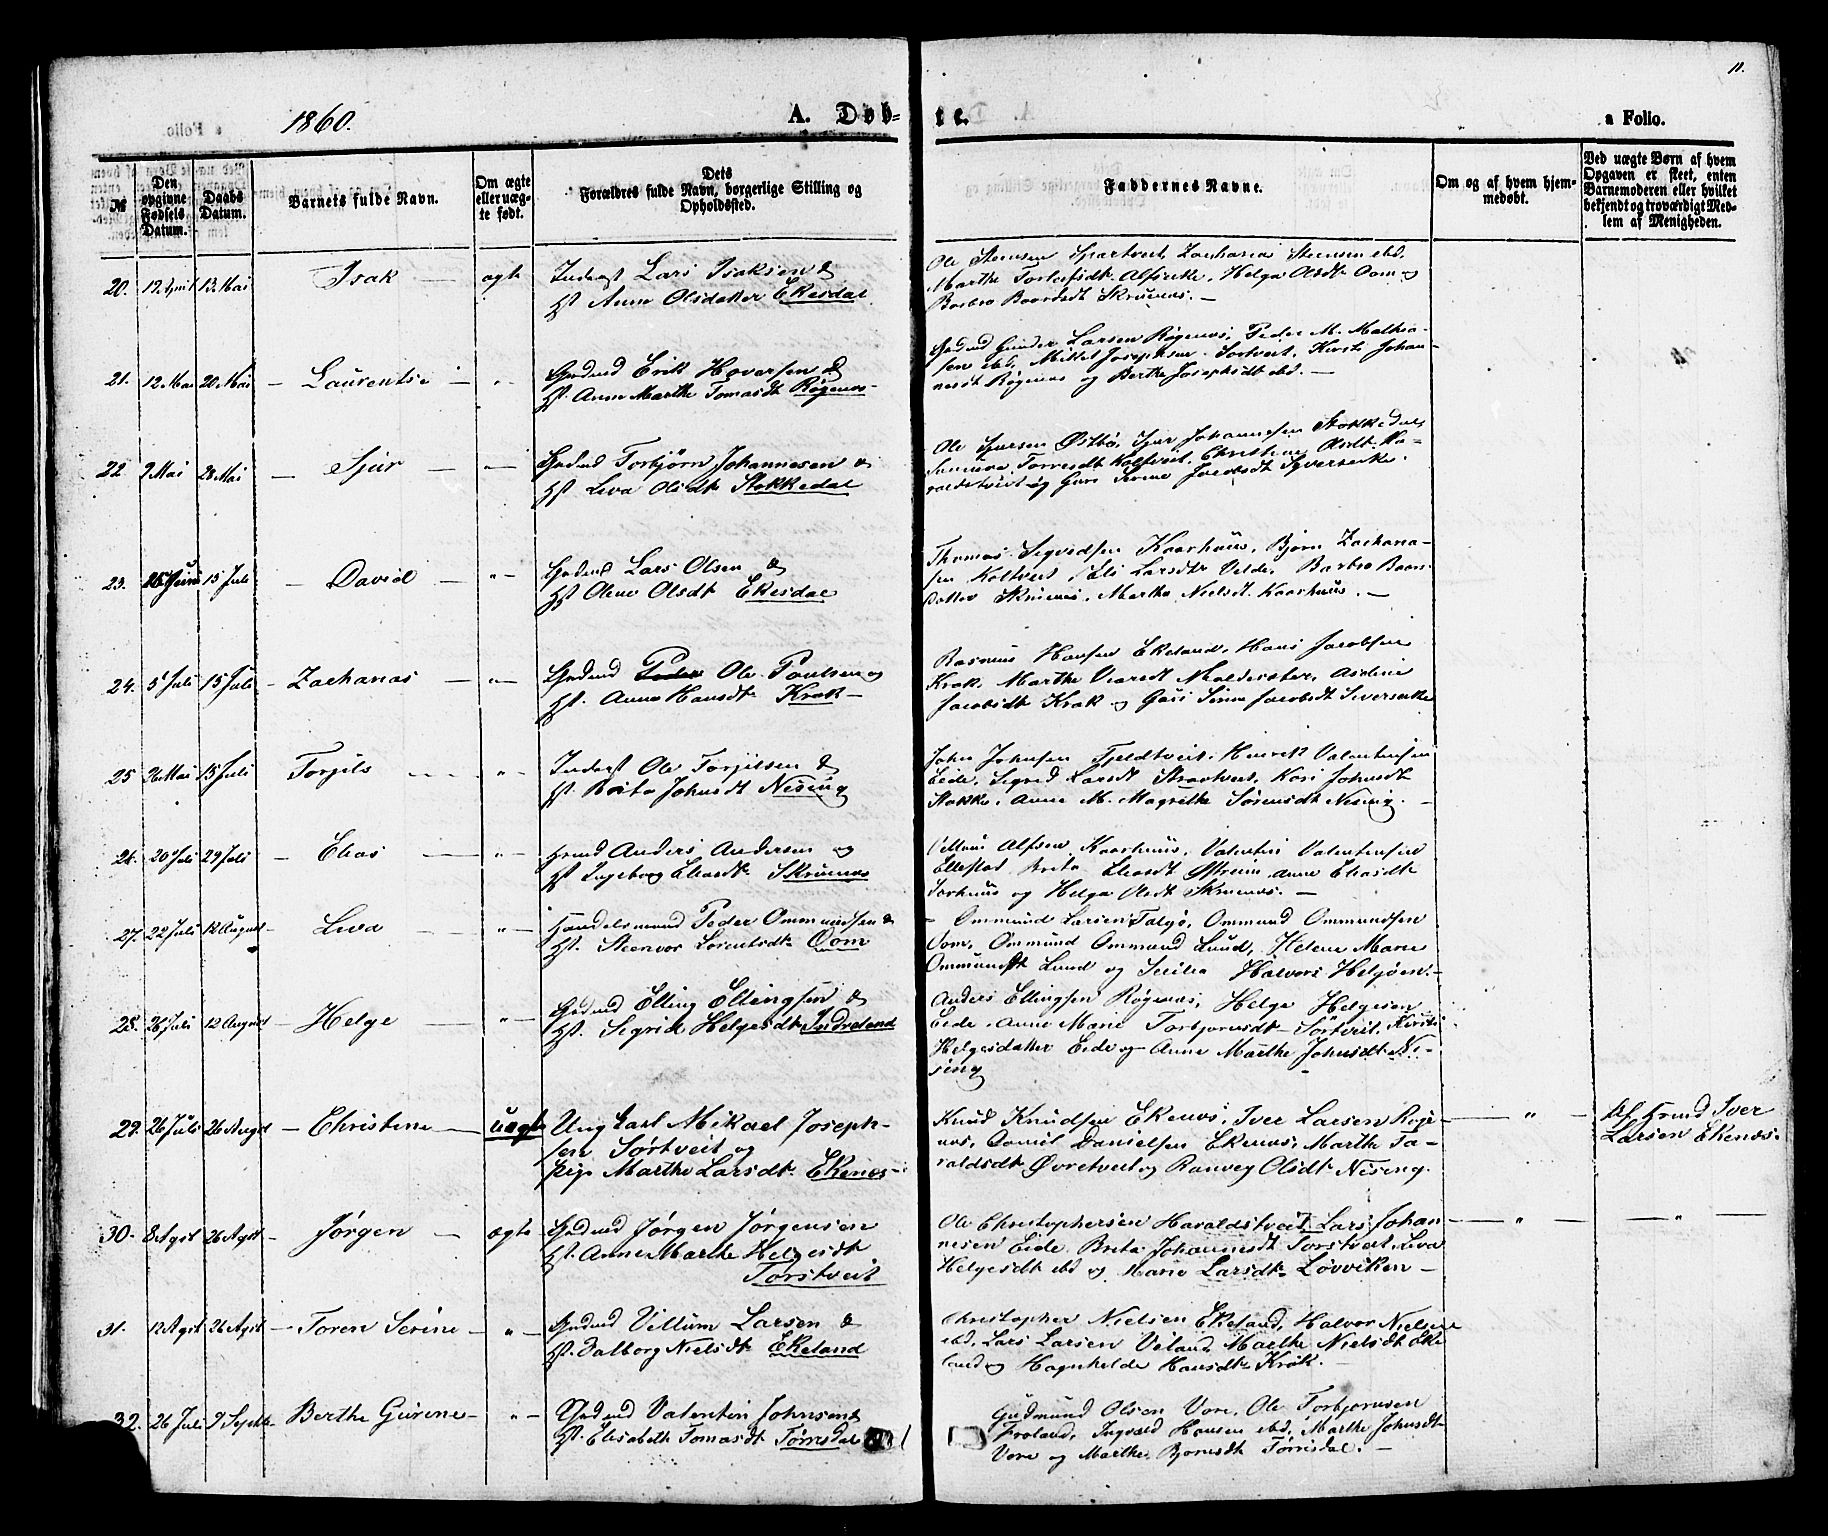 11.
1860.
A. Døb-
te.
a Folio.
№
Den opgivne Fødsels Datum.
Daabs Datum.
Barnets fulde Navn.
Om ægte eller uægte født.
Dets Forældres fulde Navn, borgerlige Stilling og Opholdssted.
Faddernes Navne.
Om og af hvem hjemmedøbt.
Ved uægte Børn af hvem Opgaven er skeet, enten Barnemoderen eller hvilket bekjendt og troværdigt Medlem af Menigheden.
20. 12 April 13 Mai Isak — ægte Inderst Lars Isaksen &
Hst. Anna Olsdatter Ekesdal
Ole Steensen Sjartveit, Zacharias Steensen ebd.
Marthe Olsdt. Oom og
Barbro Baardsdt Skruenæs. —
21. 12 Mai 20 Mai — Laurentse — „ — Gbdmd Erik Haversen &
Hst. Anne Marthe Tomasdt Røgenæs —
Gbdmd Gunder Larsen Røgenæs, Peder M. Mathia-
sen ebd, Mikkel Josephsen Sortveit, Kirsti Johan-
nesdt Røgenæs og Berthe Josephsdt ebd. —
22 9 Mai 28 Mai — Sjur — „ — Gbdmd Torbjørn Johannesen &
Hst. Liva Olsdt Stokkedal
Ole Sjursen Østbø, Sjur Johannesen Stokkedal,
Torresdt Koltveit, Christine Olsdt Ha-
raldstveit og Guri Serine Jacobsdt
23. 15 Juli — David — „ — Gbdmd Lars Olsen &
Hst. Olene Olsdt Ekesdal
Thomas Sigvedsen Kaarhuus, Bjørn Zacharia-
sen Koltveit, Eli Larsdtr Velde, Barbro Baars-
datter Skruenæs, Marthe Nielsdt. Kaarhuus. —
24. 5 Juli 15 Juli — Zacharias — „ — Gbdmd Peder Ole Poulsen og
Hst. Anna Hansdt Krak —
Rasmus Hansen Ekeland, Hans Jacobsen
Krak, Marthe
Jacobsdt Krak og Guri Serine Jacobsdt
25 26 Mai 15 Juli Torgils — „ — Inderst Ole Torgilsen &
Hst. Brita Johnsdt Nesing
John Johnsen Fjeldtveit, Henrik Valentinsen
Eide, Sigrid Larsdt Straatveit, Kari Johnsdt
Stokke, Anne M. Magrethe Sørensdt Nesing. —
26. 20 Juli 29 Juli — Elias — „ — Anders Andersen og
Hst. Ingeborg Eliasdt Skruenæs
Villum Alfsen Kaarhuus, Valentin Valentinsen
Ellestad, Brita Eliasdt Østreim, Anne Eliasdt
og Helga Olsdt Skruenæs. —
27. 22 Juli 12 August — Liva — „ — Handelsmand Peder Ommundsen &
Hst. Steenvor Lorentsdt Oom
— Ommund Larsen Talgø, Ommund Ommundsen
Oom, Ommund Ommund Lund, Helene Marie
Ommundsdt Lund og Secilia Halvors Helgøen. —
28. 26 Juli 12 August — Helge — „ — Gbdmd Elling Ellingsen &
Hst. Sigrid Helgesdt Indreland
Anders Ellingsen Røgenæs, Helge Helgesen
Eide, Anne Marie Torbjornsdt Sørtveit, Kirsti
Helgesdatter Eide og Anne Marthe Johnsdt Ne-
sing
29. 26 Juli 26 Augst — Christine — uægte Ung Carl Mikael Joseph-
sen Sørtveit og
Pige Marthe Larsdt Ekenæs —
Knud Knudsen Ekenæs, Iver Larsen Røge-
næs, Daniel Danielsen Ekenæs, Marthe Ta-
raldsdt Øvretveit og Ranveg Olsdt Nesing.
— „ —
Af Iver
Larsen Ekenæs.
30. 8 Agst 26 Agst — Jørgen — ægte Gbdmd Jørgen Jørgensen
Hst. Anne Marthe Helgesdt
Torstveit
Ole Christophersen Haraldstveit, Lars Johan-
nesen Eide, Brita Johannesdt Torstveit, Liva
Helgesdt ebd og Marie Larsdt Løvviken —
— „ —
— „ —
31. 12 Agst 26 Agst — Toren Serine — „ — Gbdmd Villum Larsen &
Hst. Valborg Nielsdt Ekeland
Christopher Nielsen Ekeland, Halvor Nielsen
ebd, Lars Larsen Veland, Marthe Nielsdt Eke-
land og Hansdt Krak. —
32. 26 Juli 9 Septbr — Berthe Gurine — „ — Gbdmd Valentin Johnsen &
Hst. Elisabeth Tomasdt Tørresdal
Gudmund Olsen Vore, Ole Torbjornsen
Froland, Ingvald Hansen ebd, Marthe Johnsdt
Vore og Marthe Bjornsdt Tørresdal. —